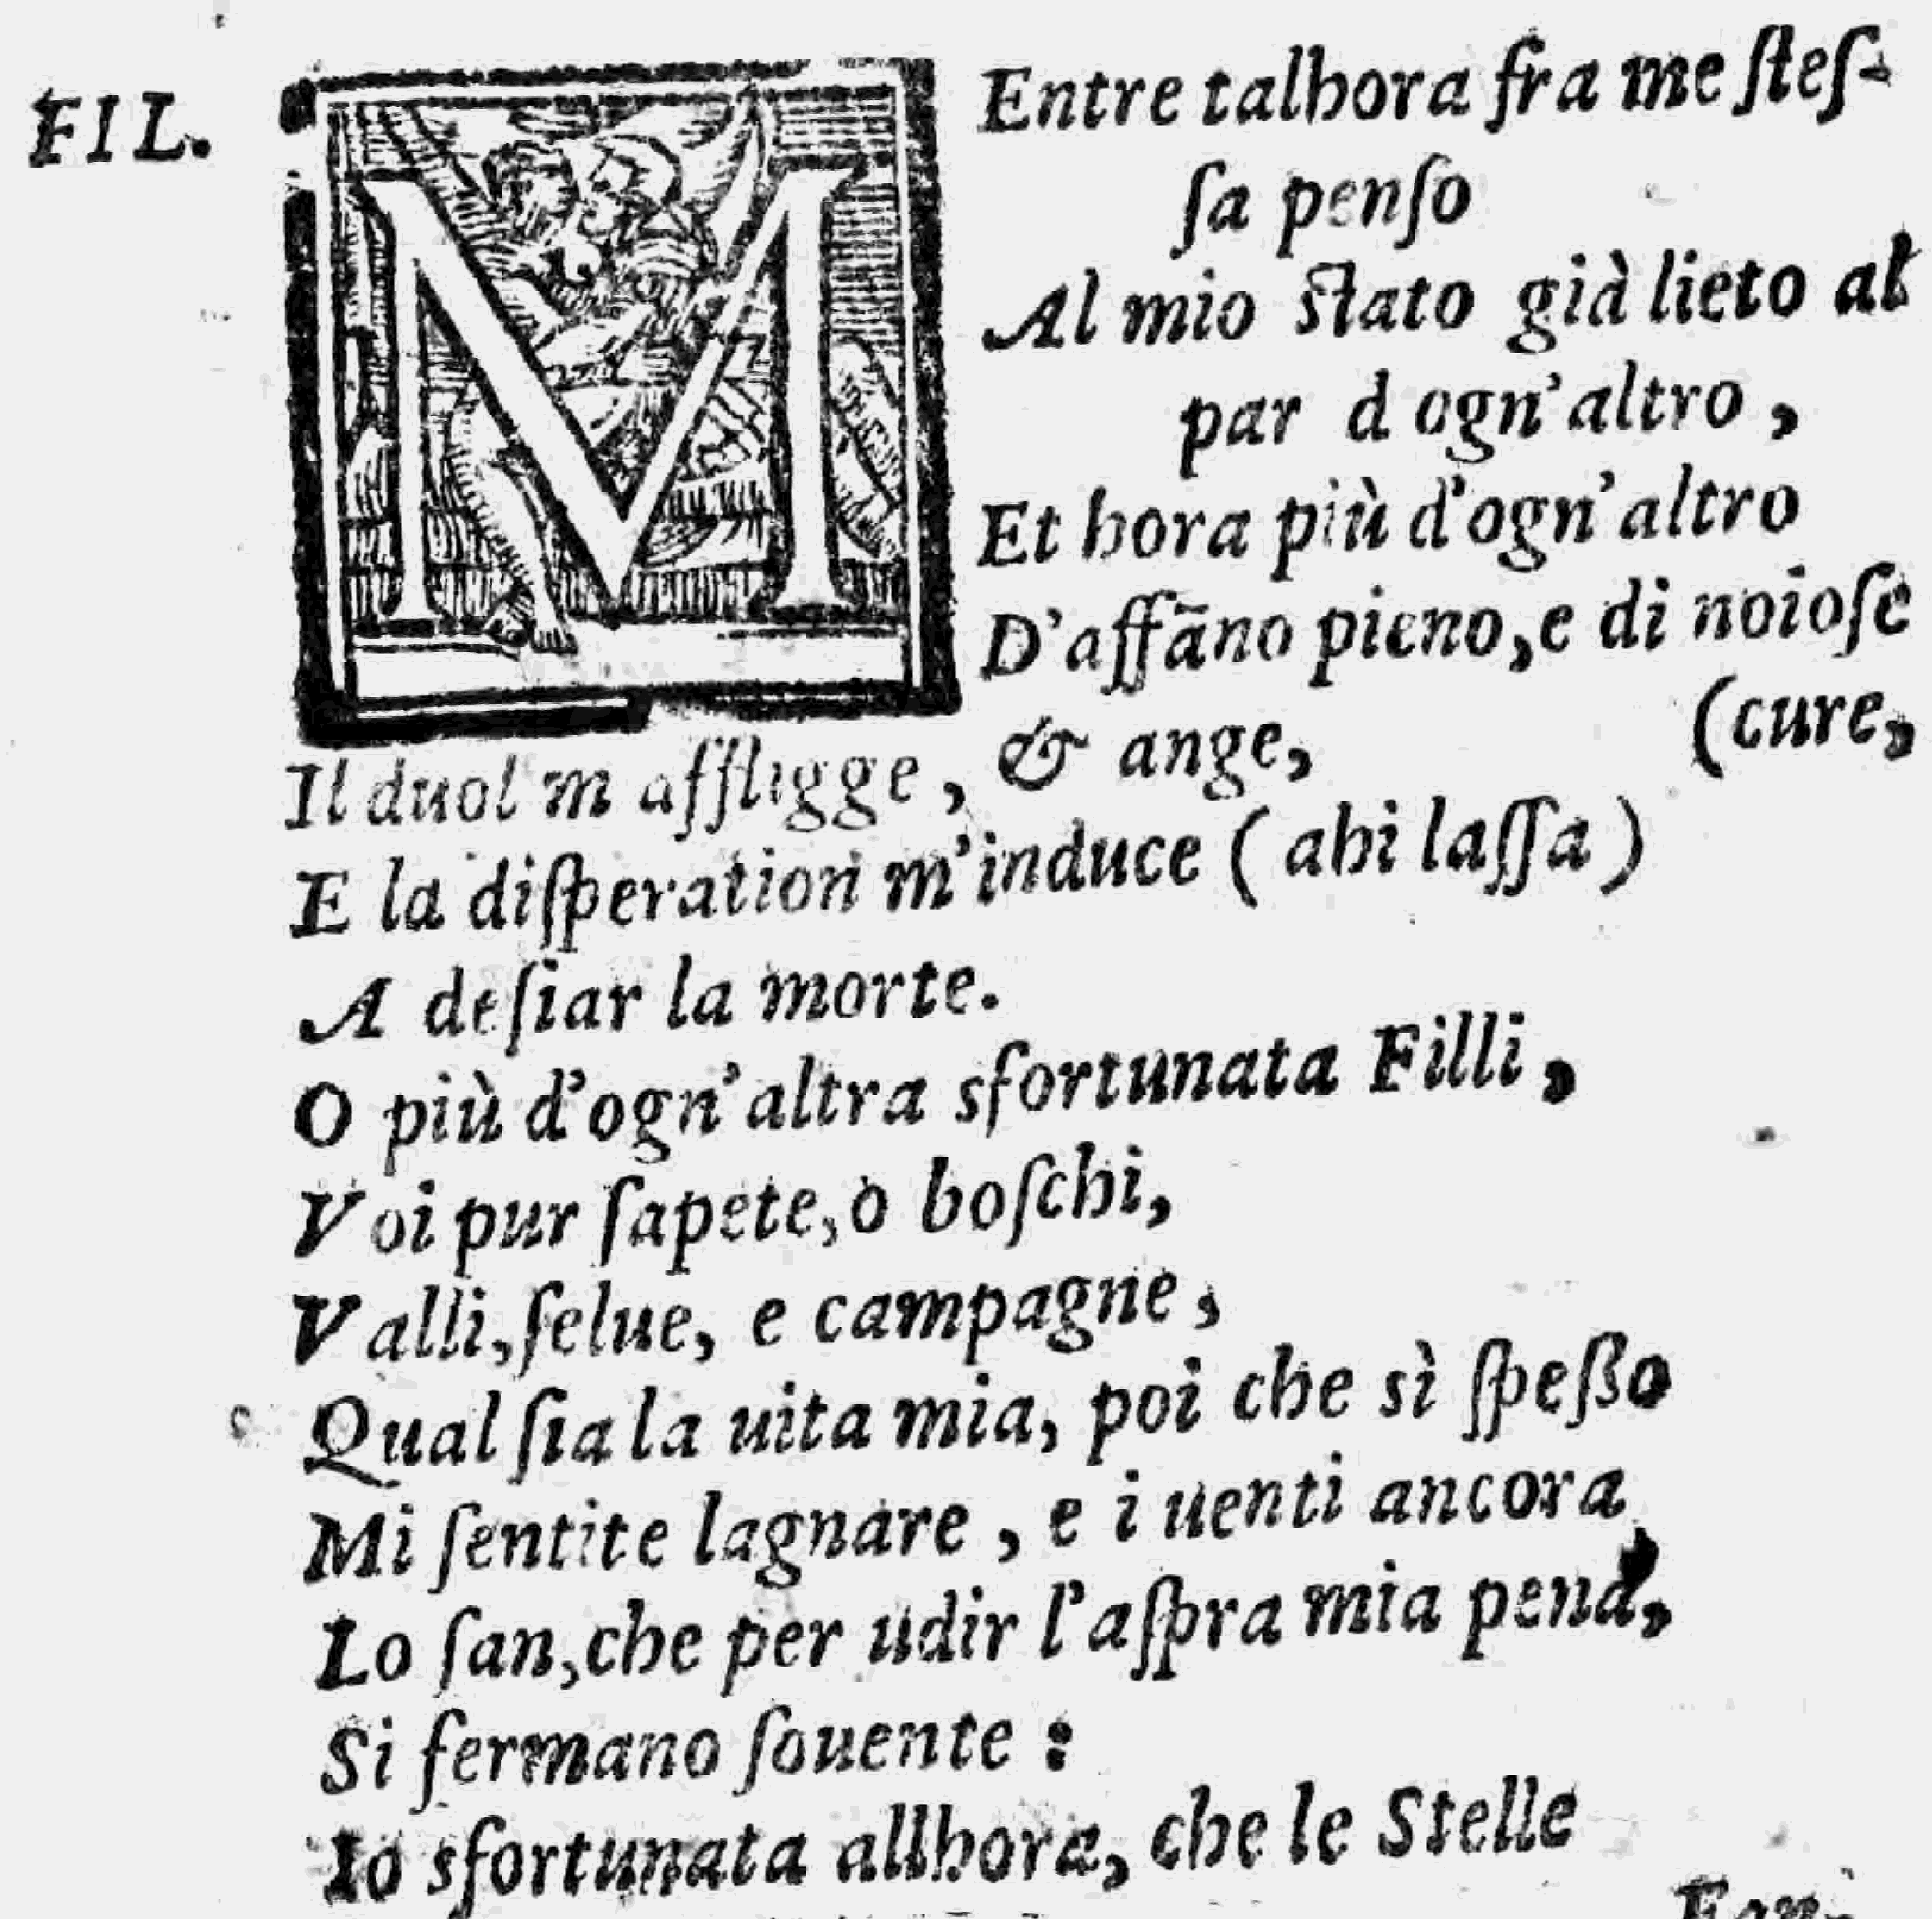 FIL. MEntre talhora fra me ſteſ-
ſa penſo
Al mio ſtato già lieto al
par d ogn'altro,
Et hora più d'ogn'altro
D'affãno pieno, e di noioſe
(cure,
Il duol m affligge, & ange,
E la diſperation m'induce (ahi laſſa)
A deſiar la morte.
O più d'ogn'altra sfortunata Filli,
Voi pur ſapete, o boſchi,
Valli, ſelue, e campagne,
Qual ſia la uita mia, poi che sì ſpeßo
Mi ſentite lagnare, e i uenti ancora
Lo ſan, che per udir l'aſpra mia pena,
Si fermano ſouente:
Io sfortunata allhora, che le Stelle